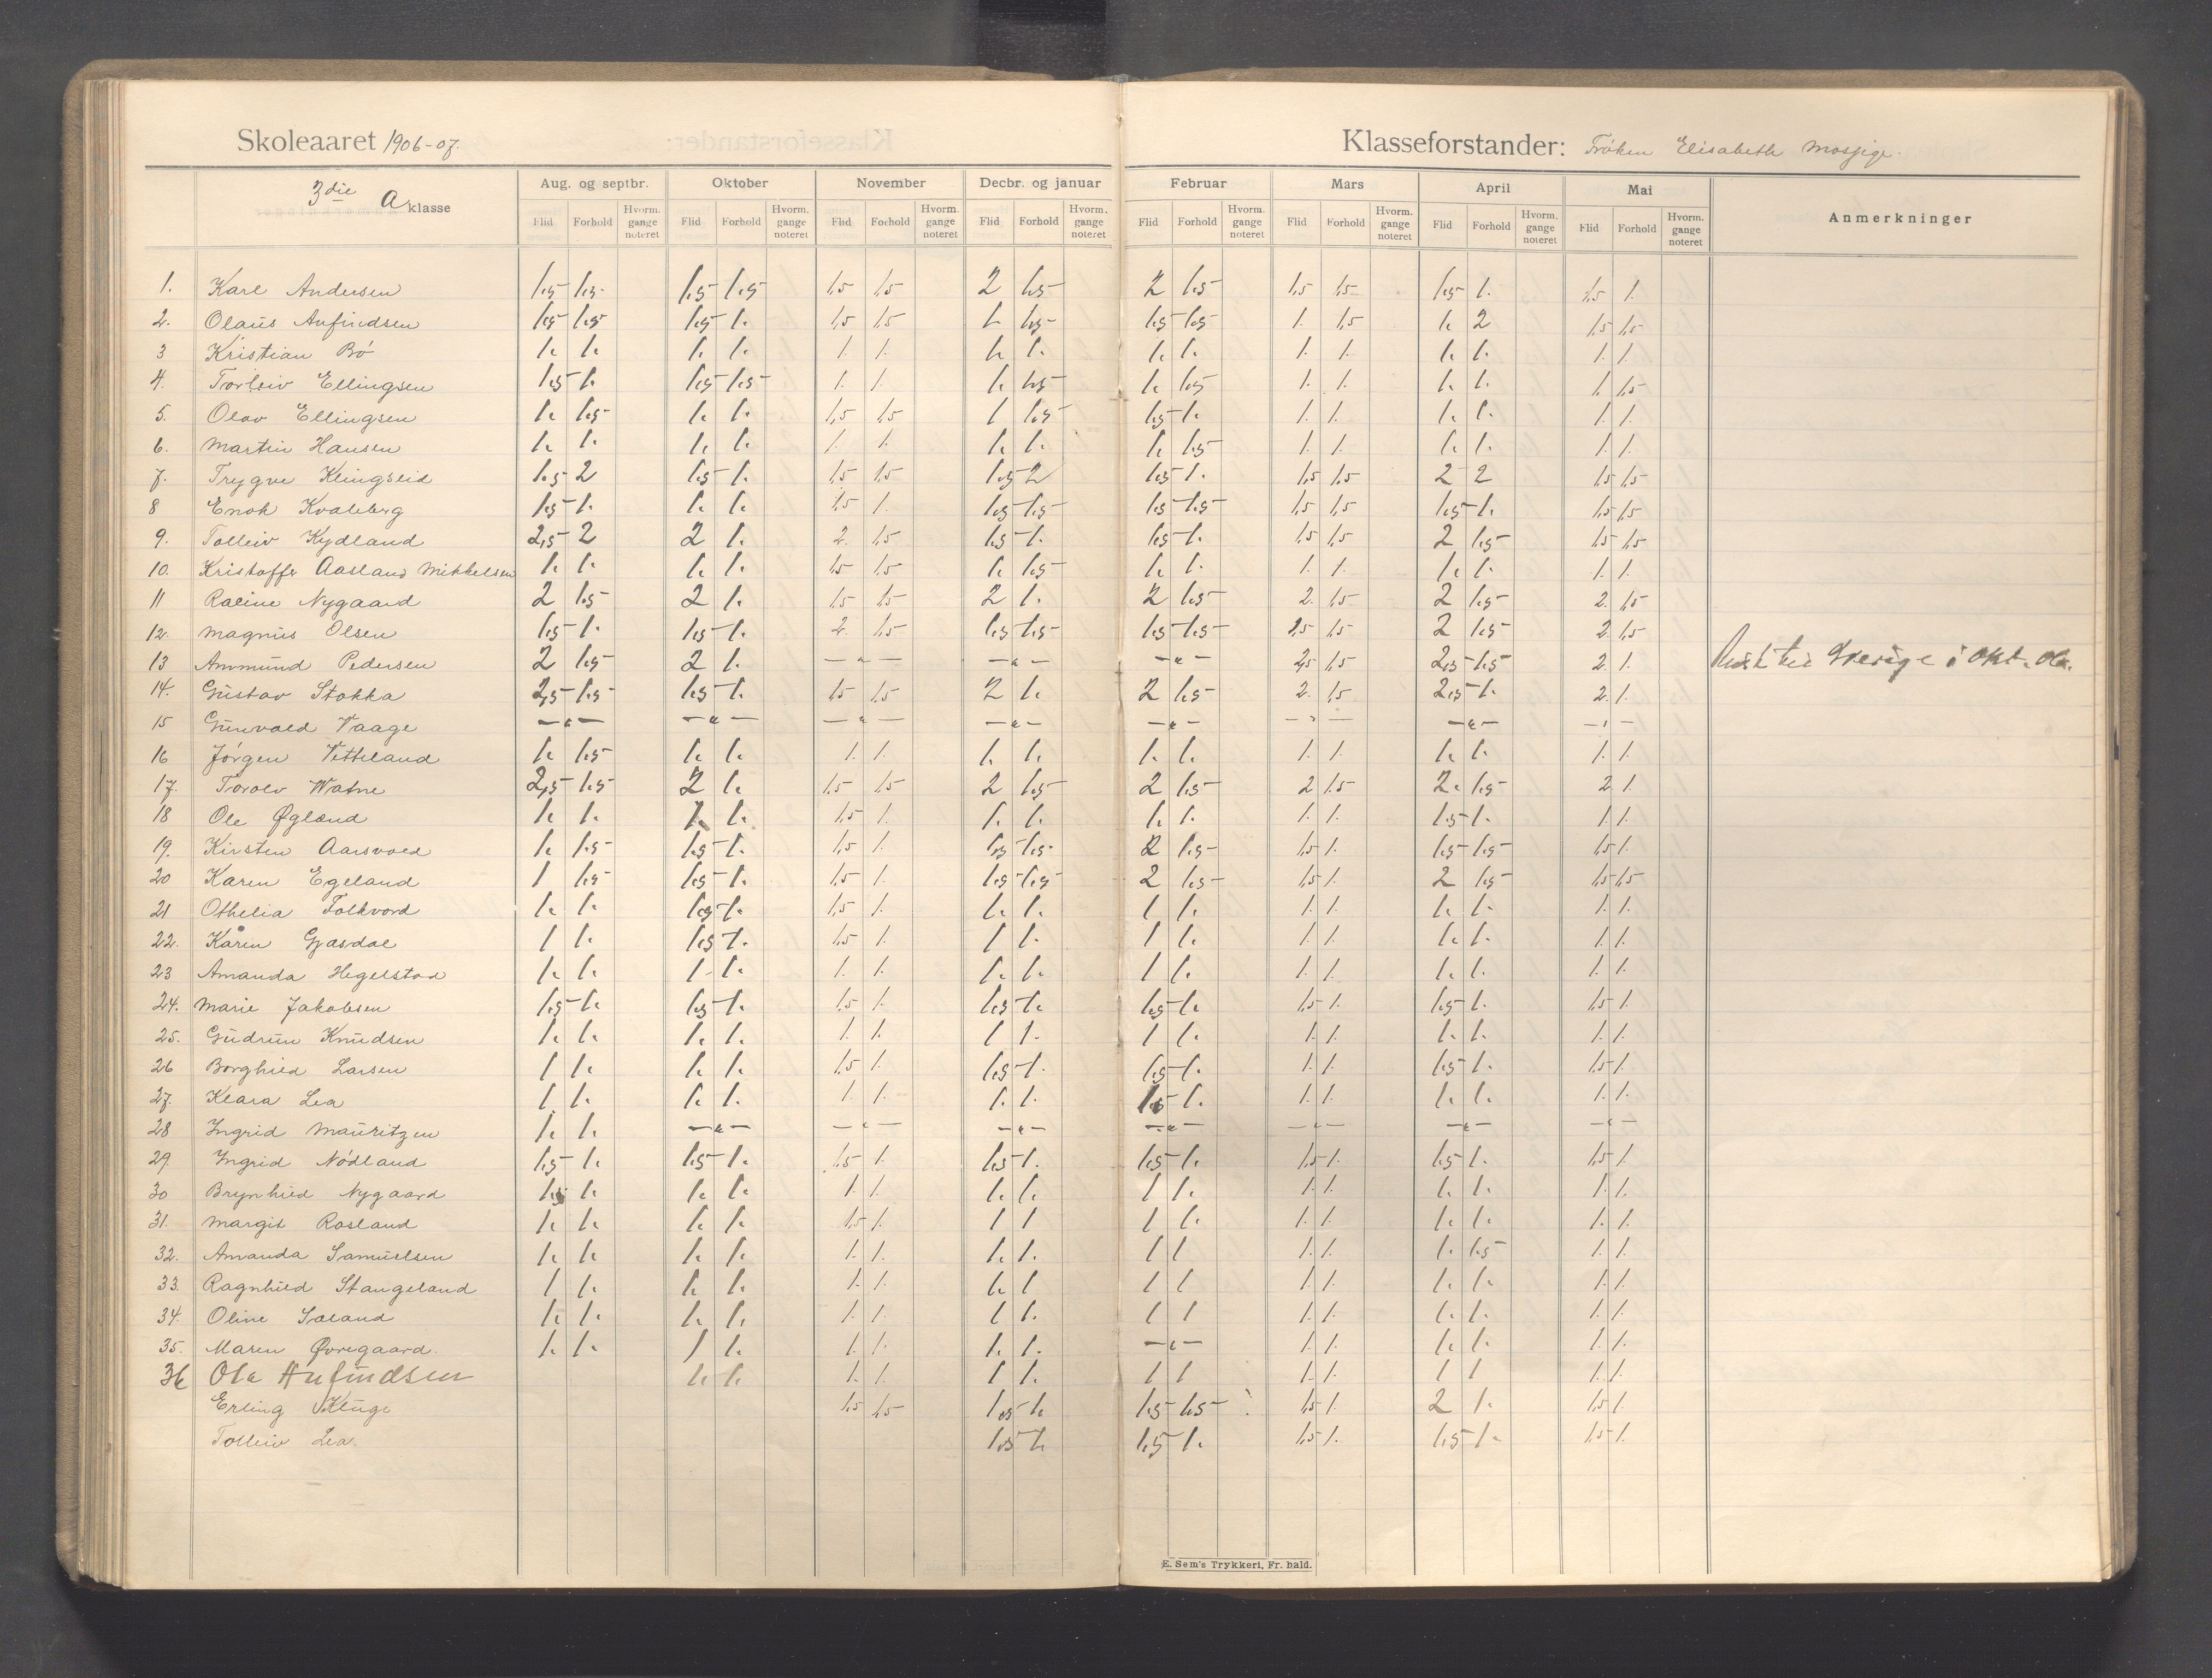 Skoleaaret 1906-07.
Klasseforstander: Fröken Elisabeth Mossige.
3die A klasse
Aug. og septbr. Oktober November Decbr. og januar Februar Mars April Mai Anmerkninger
Flid Forhold Hvorm. gange noteret Flid Forhold Hvorm. gange noteret Flid Forhold Hvorm. gange noteret Flid Forhold Hvorm. gange noteret Flid Forhold Hvorm. gange noteret Flid Forhold Hvorm. gange noteret Flid Forhold Hvorm. gange noteret Flid Forhold Hvorm. gange noteret
1. Karl Andersen 1.5 1.5 1.5 1.5 1,5 1,5 2 1.5 2 1.5 1,5 1,5 1.5 1. 1,5 1.
2. Olaus Aufindsen 1.5 1.5 1.5 1. 1,5 1,5 1. 1.5 1.5 1.5 1. 1,5 1. 2 1,5 1,5
3 Kristian Bö 1. 1. 1. 1. 1. 1. 1. 1. 1. 1. 1. 1. 1. 1. 1. 1.
4. Torleiv Ellingsen 1.5 1. 1.5 1.5 1. 1. 1. 1.5 1. 1.5 1. 1. 1. 1. 1. 1,5
5. Olav Ellingsen 1. 1.5 1. 1. 1,5 1,5 1 1.5 1.5 1. 1. 1. 1. 1. 1. 1.
6. Martin Hansen 1. 1. 1. 1. 1. 1. 1. 1. 1. 1.5 1. 1. 1. 1. 1. 1.
7. Trygve Klingseid 1.5 2 1.5 1. 1,5 1,5 1.5 2 1.5 1. 1,5 1,5 2 2 1,5 1,5
8 Enok Kvaleberg 1.5 1. 1. 1. 1,5 1. 1.5 1.5 1.5 1.5 1,5 1,5 1.5 1. 1,5 1,5
9. Tolleiv Kydland 2,5 2 2 1. 2. 1,5 1.5 1. 1.5 1. 1,5 1,5 2 1.5 1,5 1,5
10. Kristoffer Aasland Mikkelsen 1. 1. 1. 1. 1,5 1,5 1. 1.5 1. 1. 1. 1. 1. 1. 1. 1.
11 Raline Nygaard 2 1.5 2 1. 1,5 1,5 2 1. 2 1.5 2. 1,5 2 1.5 2. 1,5
12. Magnus Olsen 1.5 1. 1.5 1. 2. 1,5 1.5 1.5 1.5 1.5 2,5 1,5 2 1.5 2. 1,5
13 Ammund Pedersen 2 1.5 2 1. — " — — " — — " — 2,5 1,5 2,5 1.5 2. 1. til Sverige i Okt.
14. Gustav Stokka 2,5 1.5 1.5 1. 1,5 1,5 2 1. 2 1.5 2. 1,5 2,5 1. 2. 1.
15 Gunvald Vaage — " — — " — — " — — " — — " — — " — — " — — " —
16 Jörgen Vetteland 1. 1.5 1. 1. 1. 1. 1. 1. 1. 1. 1. 1. 1. 1. 1. 1.
17. Torolv Watne 2,5 1.5 2 1. 1,5 1,5 2 1.5 2 1.5 2 1.5 2. 1.5 2. 1.
18 Ole Øglænd 1. 1. 1. 1. 1,5 1. 1. 1. 1. 1. 1. 1. 1.5 1. 1. 1.
19. Kirsten Aarsvold 1. 1.5 1.5 1. 1,5 1. 1.5 1.5 2 1.5 1,5 1. 1.5 1.5 1,5 1.
20 Karen Egeland 1 1.5 1.5 1. 1,5 1. 1.5 1.5 2 1.5 1,5 1. 2 1.5 1,5 1,5
21 Othelia Folkvord 1. 1. 1.5 1. 1,5 1. 1. 1. 1 1. 1. 1. 1. 1. 1. 1.
22. Karen Gjasdal 1 1. 1.5 1. 1,5 1. 1 1. 1 1. 1. 1. 1. 1. 1. 1.
23 Amanda Hegelstad 1. 1. 1. 1. 1. 1. 1. 1. 1 1. 1. 1. 1. 1. 1. 1.
24. Marie Jakobsen 1.5 1. 1.5 1. 1,5 1. 1.5 1. 1.5 1. 1,5 1. 1.5 1. 1,5 1.
25. Gudrun Knudsen 1. 1. 1. 1. 1. 1. 1 1. 1 1. 1. 1. 1. 1. 1. 1.
26 Borghild Larsen 1 1. 1. 1. 1,5 1. 1.5 1. 1.5 1. 1. 1. 1.5 1. 1,5 1.
27. Klara Lea 1. 1. 1. 1. 1. 1. 1. 1. 1.5 1. 1. 1. 1. 1. 1. 1.
28 Ingrid Mauritzen 1. 1. — " — — " — — " — — " — — " — — " — — " —
29. Ingrid Nödland 1.5 1. 1.5 1. 1,5 1. 1.5 1. 1.5 1. 1,5 1. 1.5 1. 1,5 1.
30 Brynhild Nygaard 1.5 1. 1. 1. 1. 1. 1. 1. 1 1. 1. 1. 1. 1. 1. 1.
31. Margit Rosland 1. 1. 1. 1. 1,5 1. 1 1 1 1. 1. 1. 1. 1. 1. 1.
32. Amanda Samuelsen 1. 1. 1. 1. 1. 1. 1. 1. 1 1 1. 1. 1. 1.5 1. 1.
33. Ragnhild Stangeland 1 1. 1. 1. 1. 1. 1. 1 1 1 1. 1. 1. 1. 1. 1.
34. Oline Søland 1. 1. 1. 1. 1. 1. 1 1. 1 1 1. 1. 1. 1. 1. 1.
35. Maren Øvregaard. 1. 1. 1 1. 1. 1. 1. 1. — " — 1. 1. 1. 1. 1. 1.
36 Ola Aufindsen 1. 1. 1. 1. 1 1. 1 1 1. 1. 1 1 1. 1.
Erling Kluge 1,5 1,5 1.5 1. 1.5 1.5 1,5 1. 2 1. 1,5 1.
Tolleiv Lea. 1.5 1. 1.5 1. 1,5 1. 1.5 1. 1,5 1.
E. Sem's Trykkeri, Fr. hald.